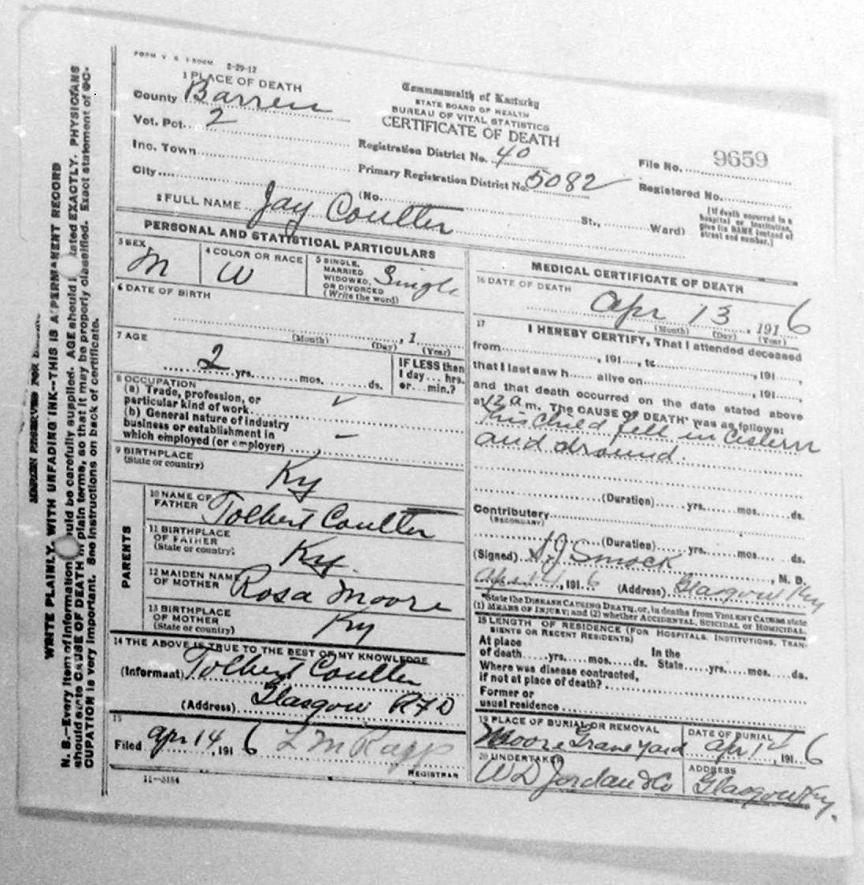 FORM V. S. 1-500M 2-29-12
1 PLACE OF DEATH
County Barren
Vot. Pct. 2
Inc. Town
City
Commonwealth of Kentucky
STATE BOARD OF HEALTH
BUREAU OF VITAL STATISTICS
CERTIFICATE OF DEATH
Registration District No. 40
Primary Registration District No. 5082
File No. 9659
Registered No.
(No. St., Ward)
(If death occurred in a
hospital or institution,
give its NAME instead of
street and number.)
2 FULL NAME Jay Coulter
PERSONAL AND STATISTICAL PARTICULARS
3 SEX M
4 COLOR OR RACE W
5 SINGLE, MARRIED WIDOWED, OR DIVORCED (Write the word) Single
6 DATE OF BIRTH
(Month) (Day) , 1 (Year)
7 AGE
2 yrs. mos. ds.
IF LESS than
1 day... hrs.
or... min.?
8 OCCUPATION
(a) Trade, profession, or
particular kind of work
(b) General nature of industry
business or establishment in
which employed (or employer)
9 BIRTHPLACE
(State or country) Ky
PARENTS
10 NAME OF
FATHER Tolbert Coulter
11 BIRTHPLACE
OF FATHER
(State or country) Ky.
12 MAIDEN NAME
OF MOTHER Rosa Moore
13 BIRTHPLACE
OF MOTHER
(State or country) Ky
14 THE ABOVE IS TRUE TO THE BEST OF MY KNOWLEDGE
(Informant) Tolbert Coulter
(Address) Glasgow RFD
15
Filed Apr 14, 191 6 L M Rapp
REGISTRAR
11-3184
MEDICAL CERTIFICATE OF DEATH
16 DATE OF DEATH
Apr 13, 191 6
(Month) (Day) (Year)
17 I HEREBY CERTIFY, That I attended deceased
from , 191 , to , 191
that I last saw h alive on , 191
and that death occurred on the date stated above
at 12 a m. The CAUSE OF DEATH* was as follows:
This Child fell in Cistern
and dround
(Duration) yrs. mos. ds.
Contributory
(SECONDARY)
(Duration) yrs. mos. ds.
(Signed) S.J. Smock M. D.
Apr 14, 191 6 (Address) Glasgow Ky
*State the DISEASE CAUSING DEATH, or, in deaths from VIOLENT CAUSES state
(1) MEANS OF INJURY; and (2) whether ACCIDENTAL, SUICIDAL or HOMICIDAL.
18 LENGTH OF RESIDENCE (FOR HOSPITALS, INSTITUTIONS, TRAN-
SIENTS OR RECENT RESIDENTS)
At place In the
of death yrs. mos. ds. State yrs. mos. ds.
Where was disease contracted,
if not at place of death?
Former or
usual residence
19 PLACE OF BURIAL OR REMOVAL
Moore Graveyard
DATE OF BURIAL
Apr 191 6
20 UNDERTAKER
W D Jordan & Co
ADDRESS
Glasgow Ky.
MARGIN RESERVED FOR
WRITE PLAINLY, WITH UNFADING INK—THIS IS A PERMANENT RECORD
N. B.—Every item of information should be carefully supplied. AGE should stated EXACTLY. PHYSICIANS
should state CAUSE OF DEATH in plain terms, so that it may be properly classified. Exact statement of OC-
CUPATION is very important. See instructions on back of certificate.